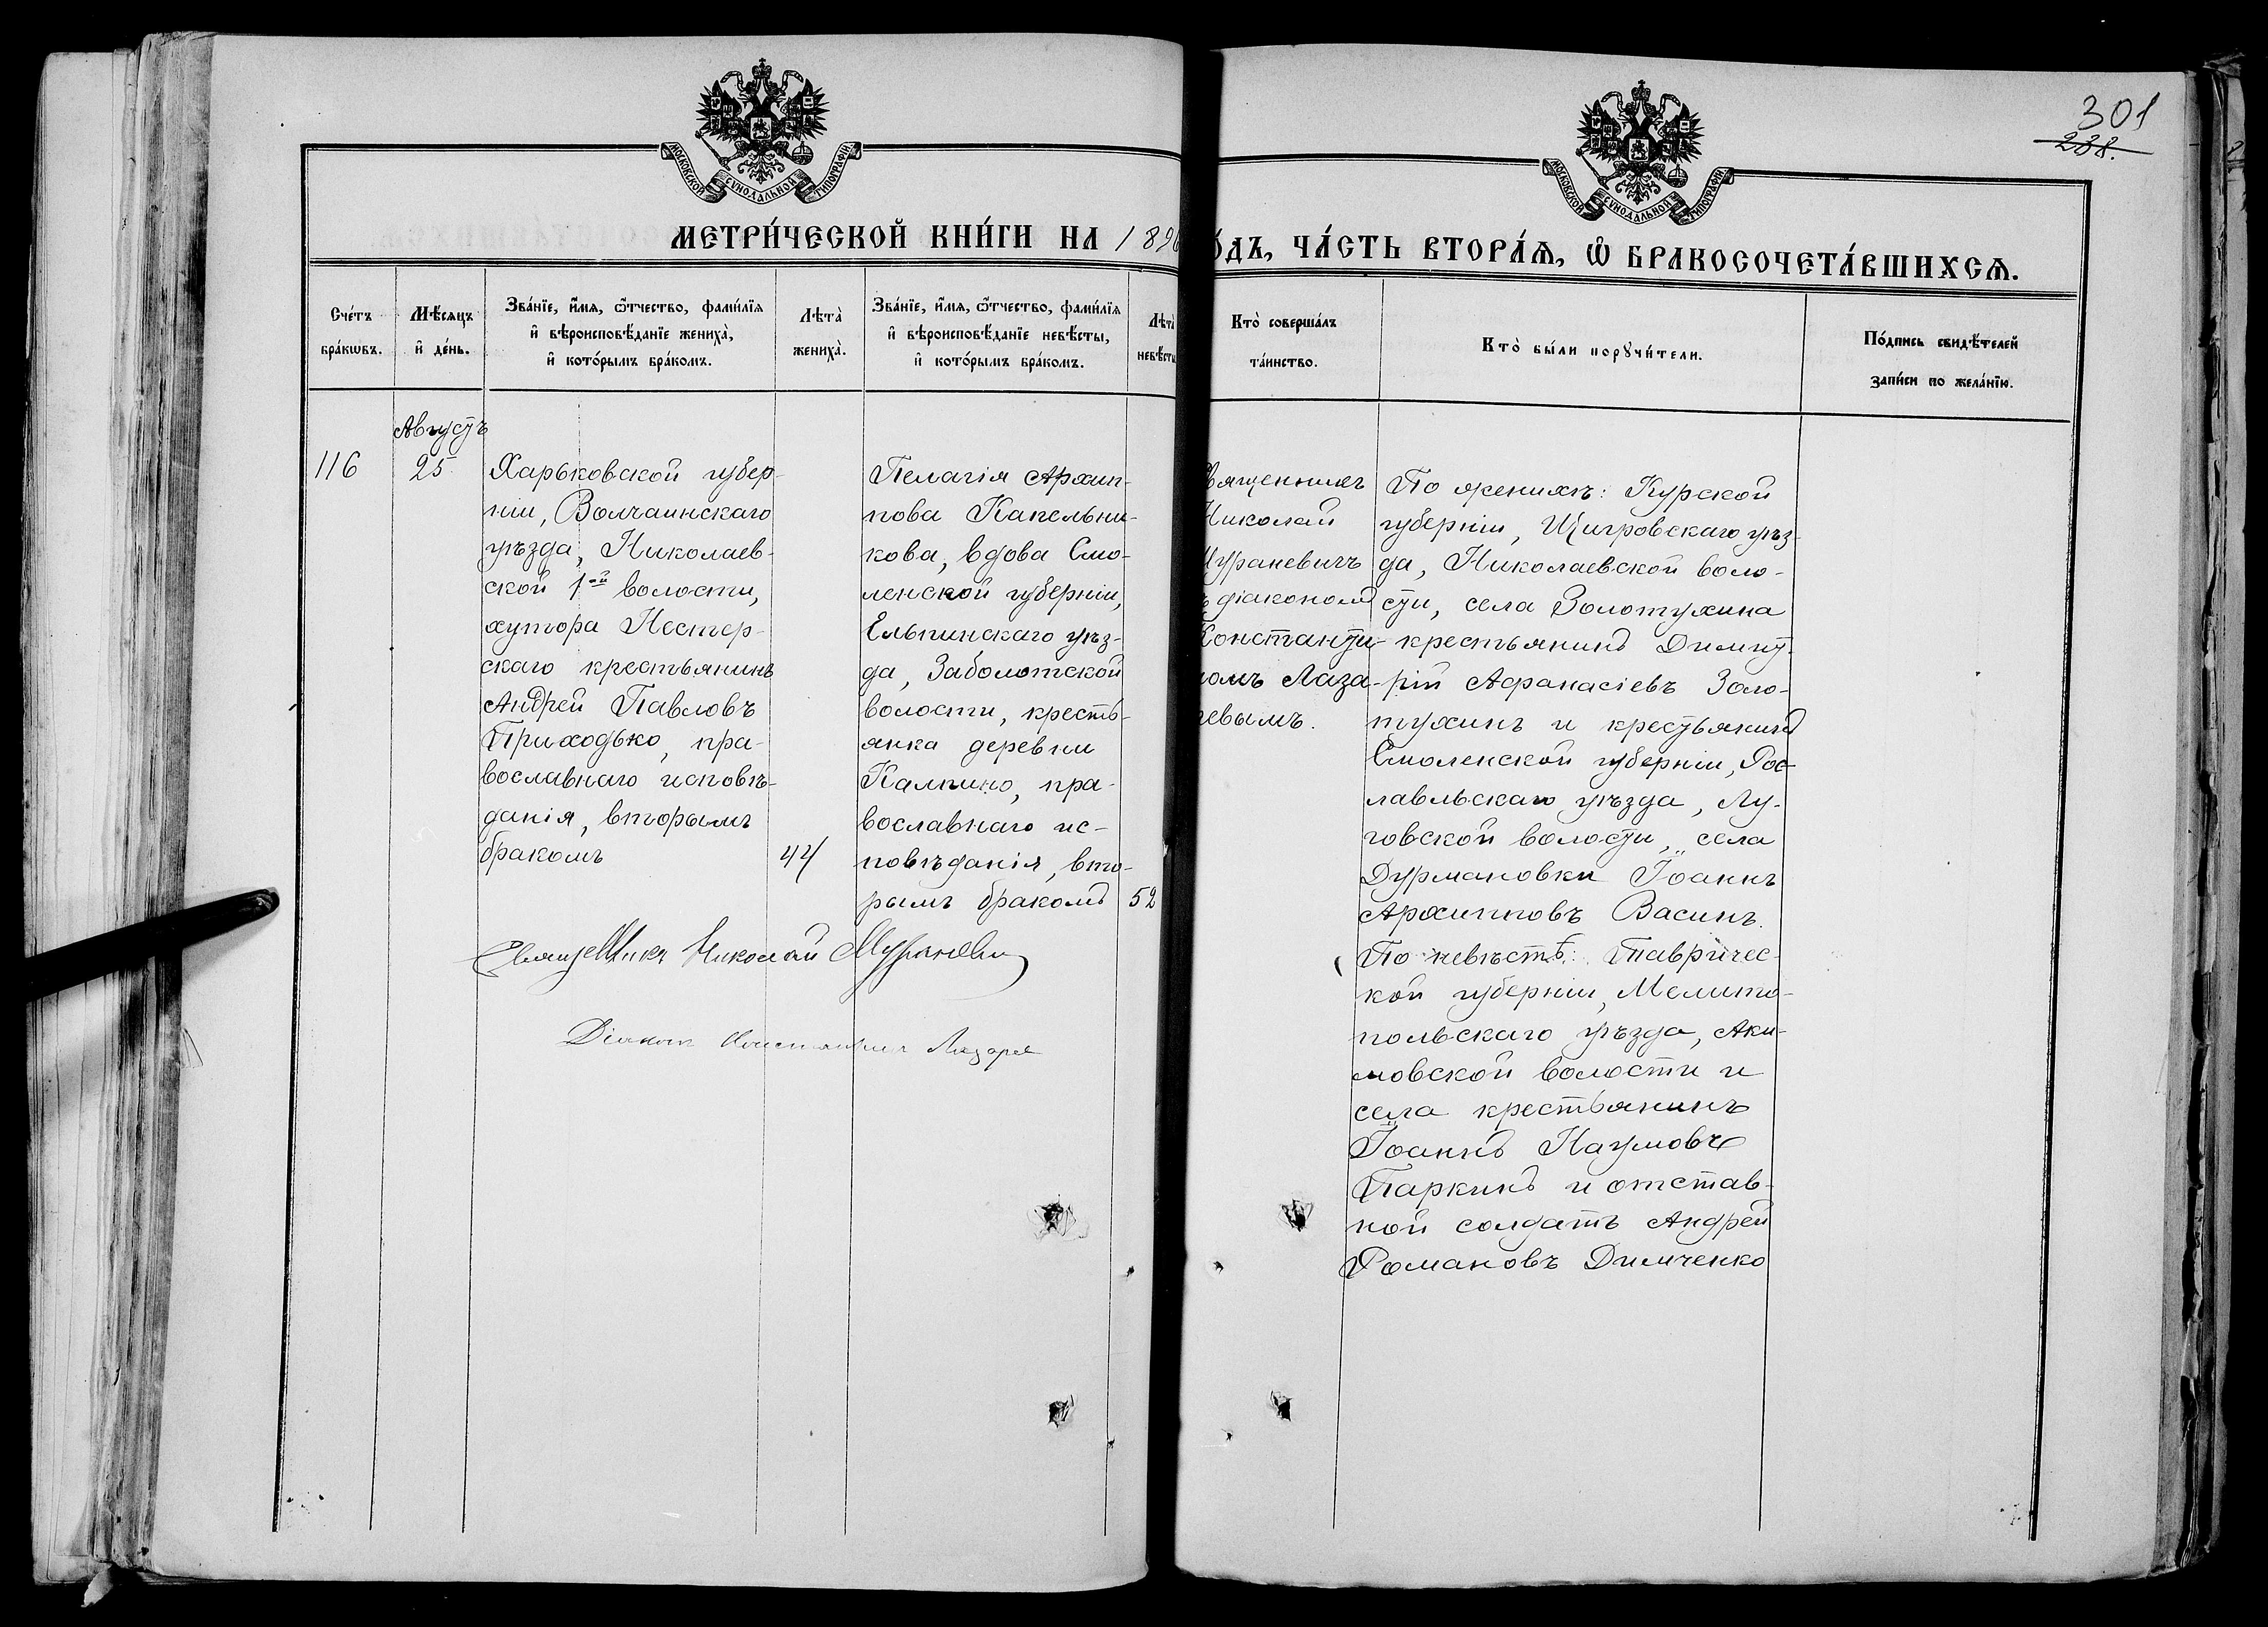 301
238.
МОСКОВСКОЙ СУНОДАЛЬНОЙ ТИПОГРАФІИ
МОСКОВСКОЙ СУНОДАЛЬНОЙ ТИПОГРАФІИ
МЕТРИ́ЧЕСКОЙ КНИ́ГИ НА 189
О́ДЪ, ЧА́СТЬ ВТОРА́Ѧ, Ѡ҆ БРАКОСОЧЕТА́ВШИХСѦ.
Сче́тъ
бра́кѡвъ.
Мѣ́сяцъ
и҆ де́нь.
Зва́нїе, и҆́мя, ѻ҆́тчество, фами́лїя
и҆ вѣроисповѣ́данїе жениха̀,
и҆ кото́рымъ бра́комъ.
Лѣта̀
жениха̀.
Зва́нїе, и҆́мя, ѻ҆́тчество, фами́лїя
и҆ вѣроисповѣ́данїе невѣ́сты,
и҆ кото́рымъ бра́комъ.
Лѣта̀
невѣ́сты
Кто̀ соверша́лъ
та́инство.
Кто̀ бы́ли порꙋчи́тели.
По́дпись свидѣ́телей
за́писи по жела́нїю.
116
Августъ
25
Харьковской губер-
ніи, Волчанскаго
уѣзда, Николаев-
ской 1-ой волости,
хутора Нестер-
скаго крестьянинъ
Андрей Павловъ
Приходько, пра-
вославнаго исповѣ-
данія, вторымъ
бракомъ
44
Пелагія Архип-
пова Капельни-
кова, вдова Смо-
ленской губерніи,
Ельнинскаго уѣз-
да, Заболотской
волости, кресть-
янка деревни
Калпино, пра-
вославнаго ис-
повѣданія, вто-
рымъ бракомъ
52
вященникъ
Николай
Мураневичъ
ъ діакономъ
Константи-
номъ Лаза-
ревымъ.
По женихѣ: Курской
губерніи, Щигровскаго уѣз-
да, Николаевской воло-
сти, села Золотухина
крестьянинъ Димит-
рій Афанасіевъ Золо-
тухинъ и крестьянинъ
Смоленской губерніи, Рос-
лавльскаго уѣзда, Лу-
говской волости, села
Дурмановки Іоаннъ
Архипповъ Васинъ.
По невѣстѣ: Тавричес-
кой губерніи, Мелито-
польскаго уѣзда, Аки-
мовской волости и
села крестьянинъ
Іоаннъ Наумовъ
Паркинъ и отстав-
ной солдатъ Андрей
Романовъ Димченко
Священникъ Николай Мураневич
Діаконъ Константинъ Лазаре